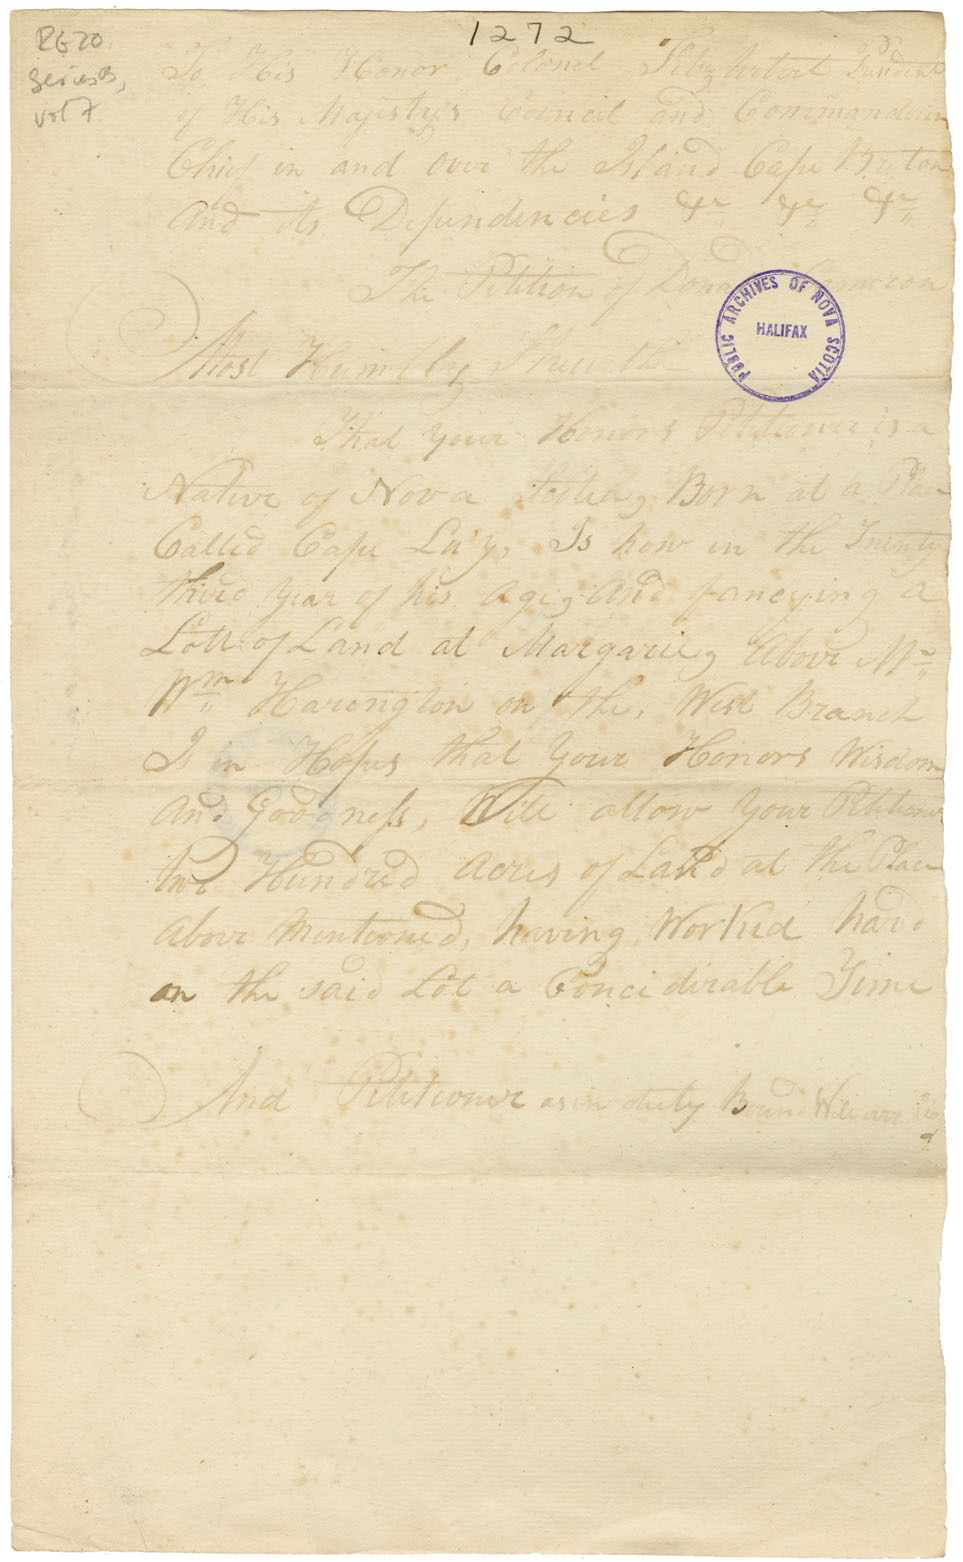 1272
RG 20
series B,
vol 7.
To His Honor Colonel Fitzherbert President
of His Majestys Council and Commander in
Chief in and over the Island Cape Breton
And its Dependencies &c &c &c
The Petition of Donald Cameron
Most Humbly Sheweth
PUBLIC ARCHIVES OF NOVA SCOTIA
HALIFAX
That your Honors Petitioner is a
Native of Nova Scotia, Born at a Place
Called Cape Luy, Is now in the Twenty
third year of his age, and fancying a
Lott of Land at Margarie, Above Mr
Wm Harington on the, West Branch
Is in Hopes that Your Honors Wisdom
And Goodness, Will allow Your Petitioner
two Hundred Acres of Land at the Place
Above Mentioned, having Worked hard
on the said Lot a Concidirable Time
And Petitioner as in duty Bound Will ever